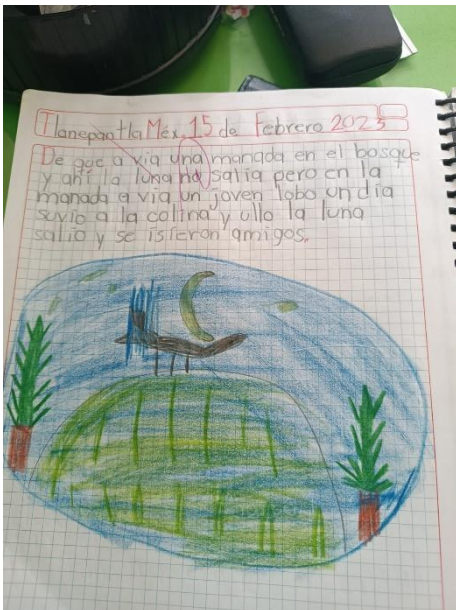 Tlanepantla Méx. 15 de Febrero 2023
De que a via una manada en el bosque
y ahí la luna no salia pero en la
manada a via un joven lobo un día
suvio a la colina y ullo la luna
salio y se isieron amigos.